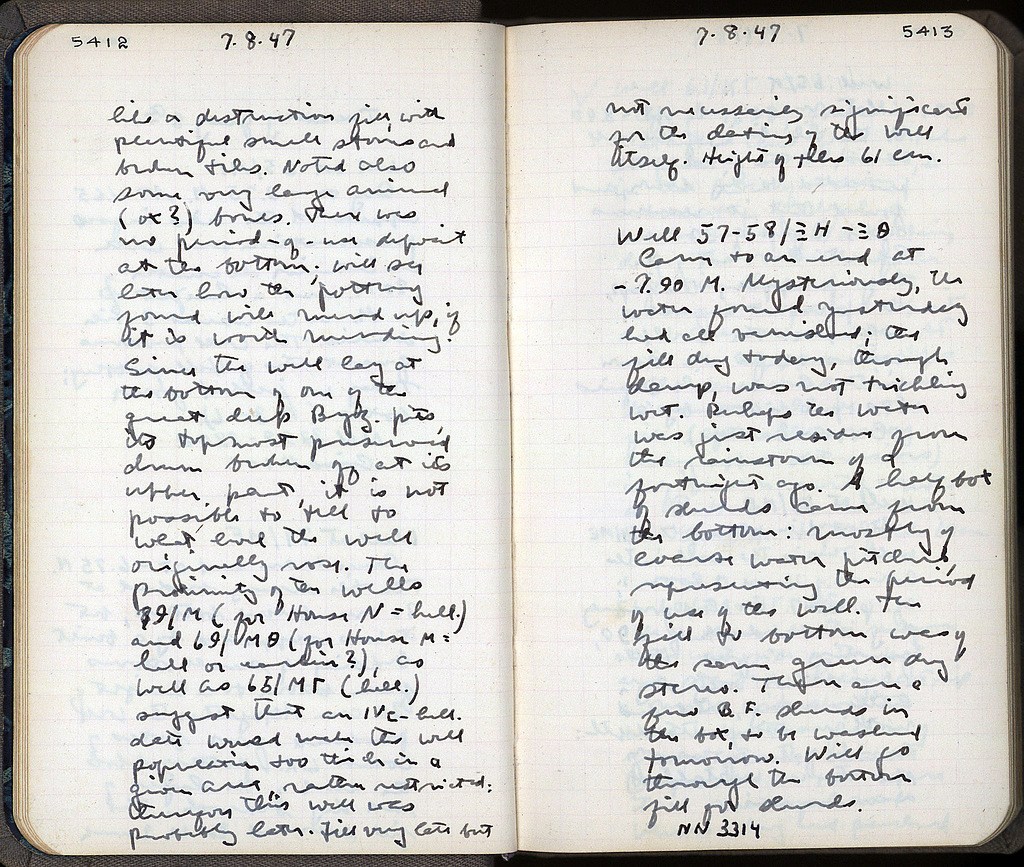 5412
7.8.47
like a destruction fill, with
plentiful small stones and
broken tiles. Noted also
some very large animal
(ox?) bones. There was
no period-of-use deposit
at the bottom; will see
later how the pottery
found will mend up, if
it is worth mending.
Since the well lay at
the bottom of one of the
great deep Byz. pits,
its topmost preserved
drum broken off at its
upper part, it is not
possible to tell to
what level the well
originally rose. The
proximity of the wells
39/M (for House N = hell.)
and 69/MΘ (for House M =
hell or earlier?), as
well as 65/MΓ (hell.)
suggest that an IVc-hell.
date would make the well
population too thick in a
given area, rather restricted:
therefore this well was
probably later. Fill very late but
7.8.47
5413
not necessarily significant
for the dating of the well
itself. Height of tiles 61 cm.
Well 57-58/ΞH-ΞΘ
Came to an end at
-7.90 M. Mysteriously, the
water found yesterday
had all vanished; the
fill dug today, though
damp, was not trickling
wet. Perhaps the water
was just residue from
the rainstorm of a
fortnight ago. A half box
of sherds came from
the bottom: mostly of
coarse water pitchers,
representing the period
of use of the well. The
fill to bottom was of
the same green clay
stereo. There are a
few B.F. sherds in
the box, to be washed
tomorrow. Will go
through the bottom
fill for sherds.
NN 3314